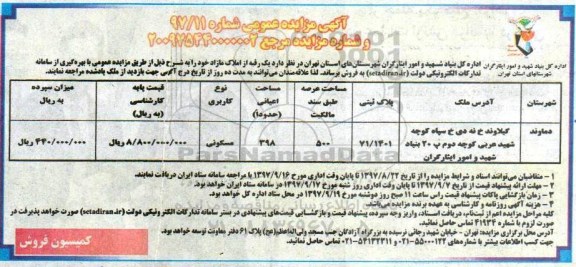 آگهی مزایده عمومی شماره ۹۷/۱۱
و شماره مزایده مرجع ۲۰۰۹۷۵۴۴۰۰۰۰۰۰۲
اداره کل بنیاد شهید و امور ایثارگران
شهرستانهای استان تهران
اداره کل بنیاد شهید و امور ایثارگران شهرستان‌های استان تهران در نظر دارد یک رقبه از املاک مازاد خود را به شرح ذیل از طریق مزایده عمومی با بهره‌گیری از سامانه
تدارکات الکترونیکی دولت (setadiran.ir) به فروش برساند. لذا علاقه‌مندان می‌توانند به مدت ده روز از تاریخ درج آگهی جهت بازدید از ملک یادشده مراجعه نمایند.
شهرستان آدرس ملک پلاک ثبتی مساحت عرصه طبق سند مالکیت مساحت اعیانی (حدودا) نوع کاربری قیمت پایه کارشناسی (به ریال) میزان سپرده به ریال
دماوند گیلاوند خ نه دی خ سپاه کوچه شهید عربی کوچه دوم پ ۲۰ بنیاد شهید و امور ایثارگران ۷۱/۱۴۰۱ ۵۰۰ ۳۹۸ مسکونی ۸/۸۰۰/۰۰۰/۰۰۰ ریال ۴۴۰/۰۰۰/۰۰۰ ریال
۱ - متقاضیان می‌توانند اسناد و شرایط مزایده را از تاریخ ۱۳۹۷/۸/۲۲ تا پایان وقت اداری مورخ ۱۳۹۷/۹/۱۶ با مراجعه سامانه ستاد ایران دریافت نمایند.
۲ - مهلت ارائه پیشنهاد قیمت از تاریخ ۱۳۹۷/۹/۷ تا پایان وقت اداری روز شنبه مورخ ۱۳۹۷/۹/۱۷ در سامانه ستاد ایران خواهد بود.
۳ - زمان بازگشایی پاکات پیشنهاد قیمت راس ساعت ۱۱ صبح روز دوشنبه مورخ ۱۳۹۷/۹/۱۹ در محل ستاد اداره کل خواهد بود.
۴ - هزینه آگهی روزنامه و کارشناسی به عهده برنده مزایده می‌باشد.
کلیه مراحل مزایده اعم از ثبت‌نام، دریافت اسناد، واریز وجه سپرده، پیشنهاد قیمت و بازگشایی قیمت‌های پیشنهادی در بستر سامانه تدارکات الکترونیکی دولت (setadiran.ir) صورت خواهد پذیرفت در
صورت لزوم با شماره ۴۱۹۳۴ تماس حاصل نمائید.
آدرس محل برگزاری مزایده: تهران - خیابان شهید رجائی نرسیده به بزرگراه آزادگان جنب مسجد ولی‌الله‌اعظم(عج) پلاک ۶۱ دفتر معاونت توسعه خواهد بود.
جهت کسب اطلاعات بیشتر با شماره های ۵۵۰۰۰۱۲۲-۰۲۱ و ۵۴۱۳۲۳۱۱-۰۲۱ تماس حاصل نمائید.
کمیسیون فروش
ParsNamadData